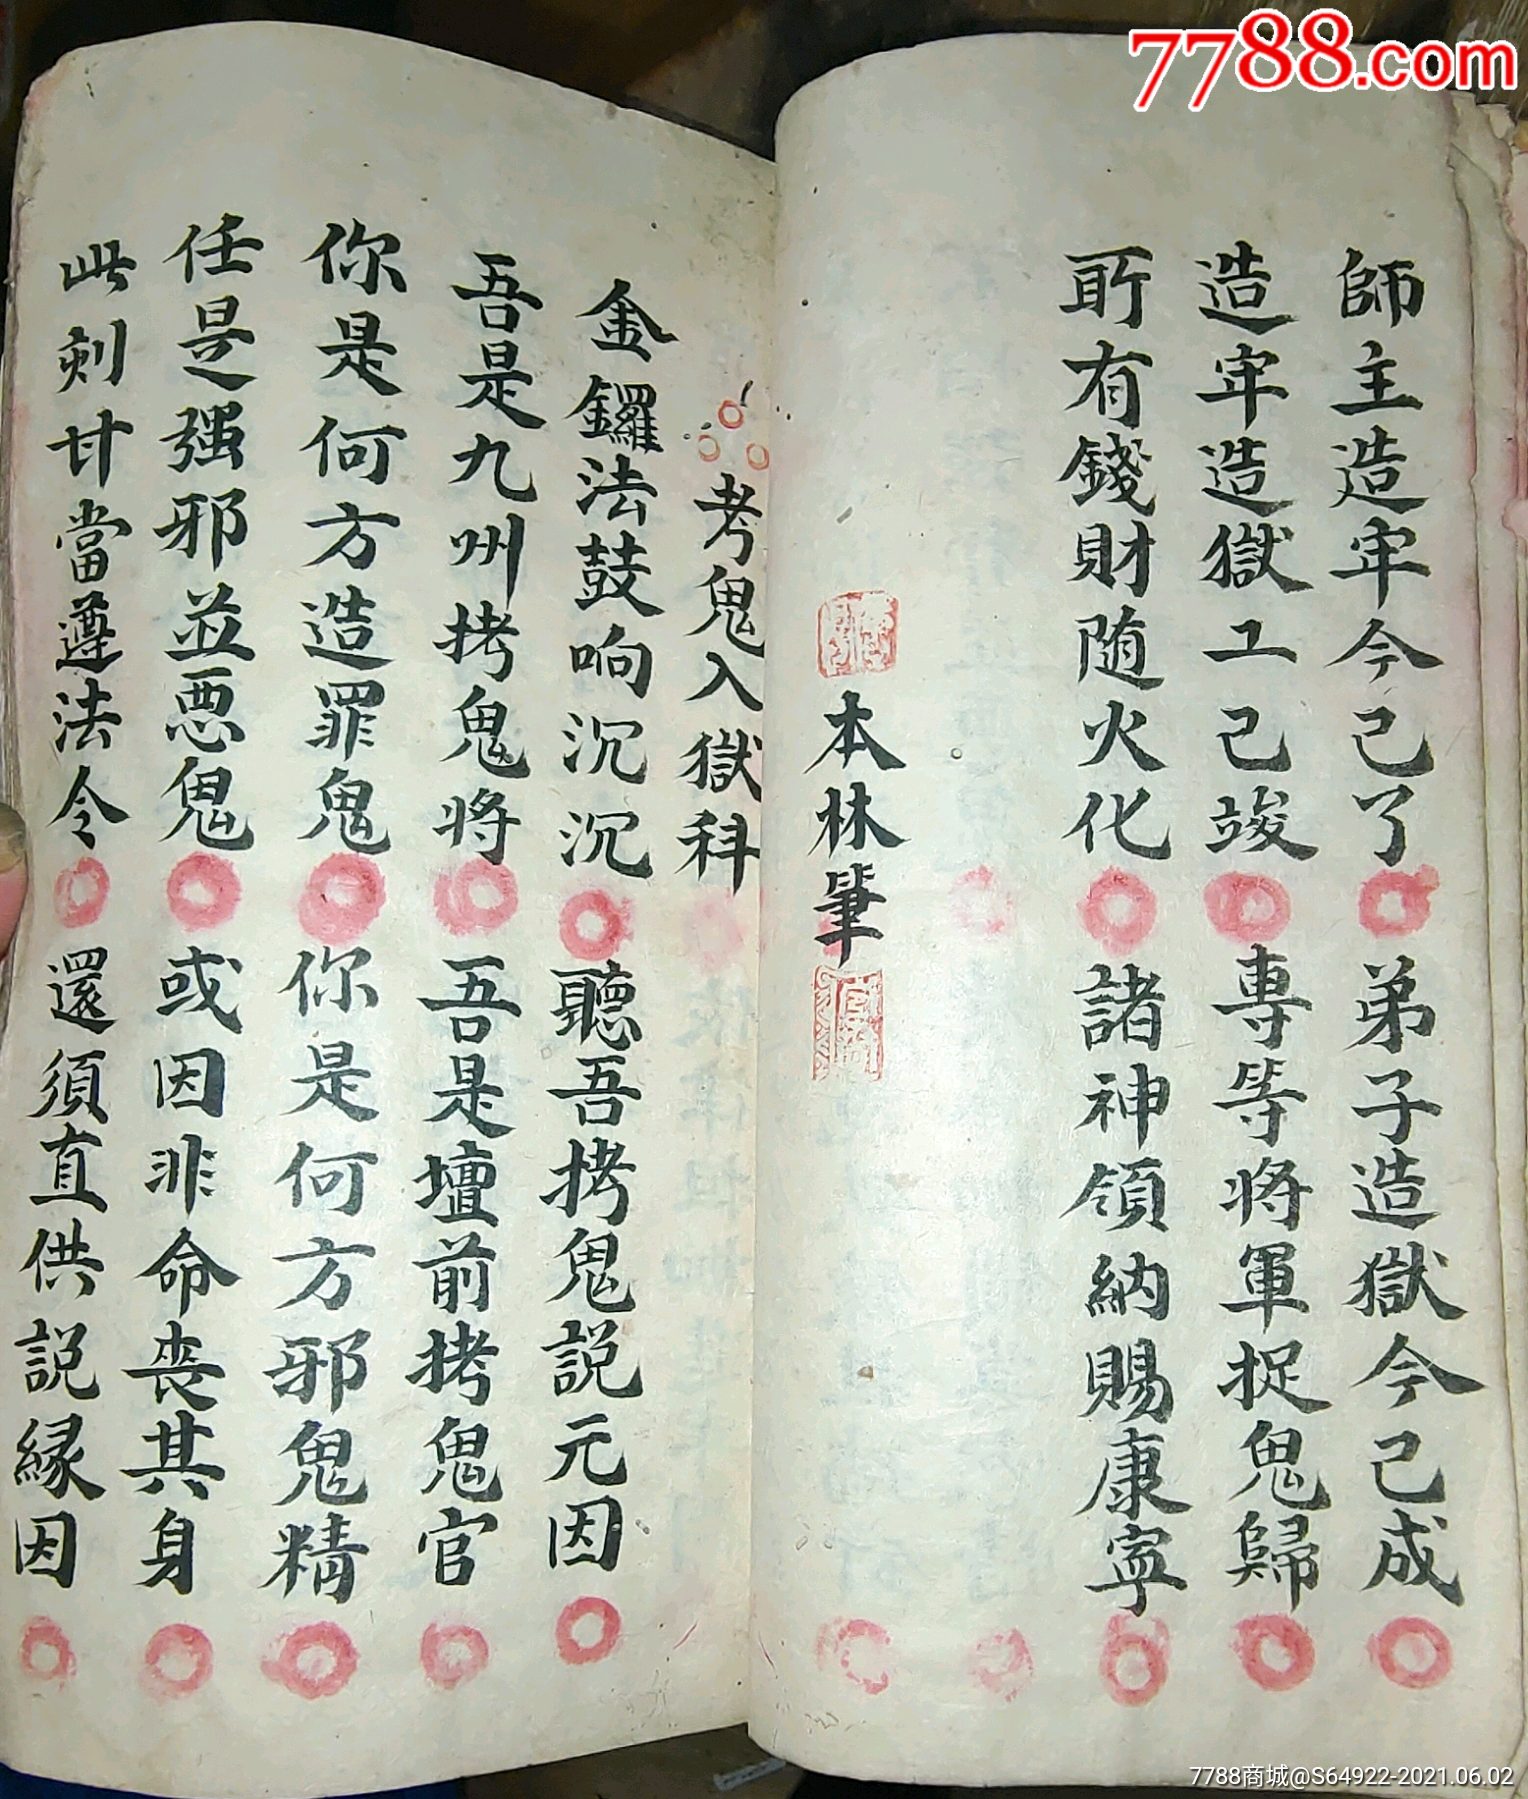 7788.com
師主造牢今已了 弟子造獄今已成
造牢造獄工已竣 專等將軍捉鬼歸
所有錢財随火化 諸神領納賜康寧
本林筆
考鬼入獄科
金鑼法鼓响沉沉 聽吾拷鬼説元因
吾是九州拷鬼将 吾是壇前拷鬼官
你是何方造罪鬼 你是何方邪鬼精
任是强邪並悪鬼 或因非命丧其身
此刻甘當遵法令 還須直供説緣因
7788商城@S64922-2021.06.02